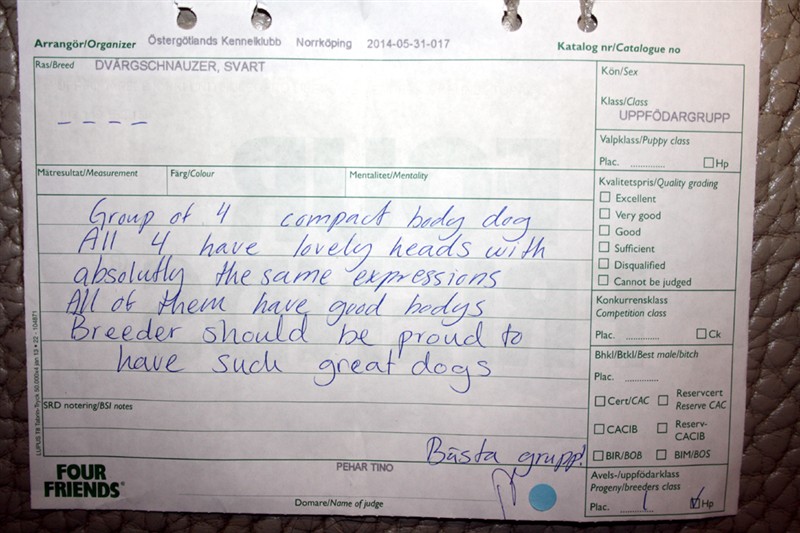 Arrangör/Organizer Östergötlands Kennelklubb Norrköping 2014-05-31-017 Katalog nr/Catalogue no
Ras/Breed DVÄRGSCHNAUZER, SVART
Kön/Sex
Klass/Class
UPPFÖDARGRUPP
– – – –
Valpklass/Puppy class
Plac. .............. Hp
Mätresultat/Measurement Färg/Colour Mentalitet/Mentality
Kvalitetspris/Quality grading
Excellent
Very good
Good
Sufficient
Disqualified
Cannot be judged
Group of 4 compact body dog
All 4 have lovely heads with
absolutly the same expressions
All of them have good bodys
Breeder should be proud to
have such great dogs
Konkurrensklass
Competition class
Plac. .............. Ck
Bhkl/Btkl/Best male/bitch
Plac. ..............
Cert/CAC Reservcert
Reserve CAC
CACIB Reserv-
CACIB
BIR/BOB BIM/BOS
SRD notering/BSI notes
Bästa grupp!
PEHAR TINO
FOUR
FRIENDS
Domare/Name of judge
Avels-/uppfödarklass
Progeny/breeders class
Plac. 1 Hp